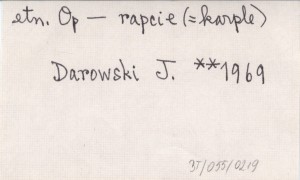 etn. Op — rapcie (= karple)
Darowski J. **1969
37/055/0219